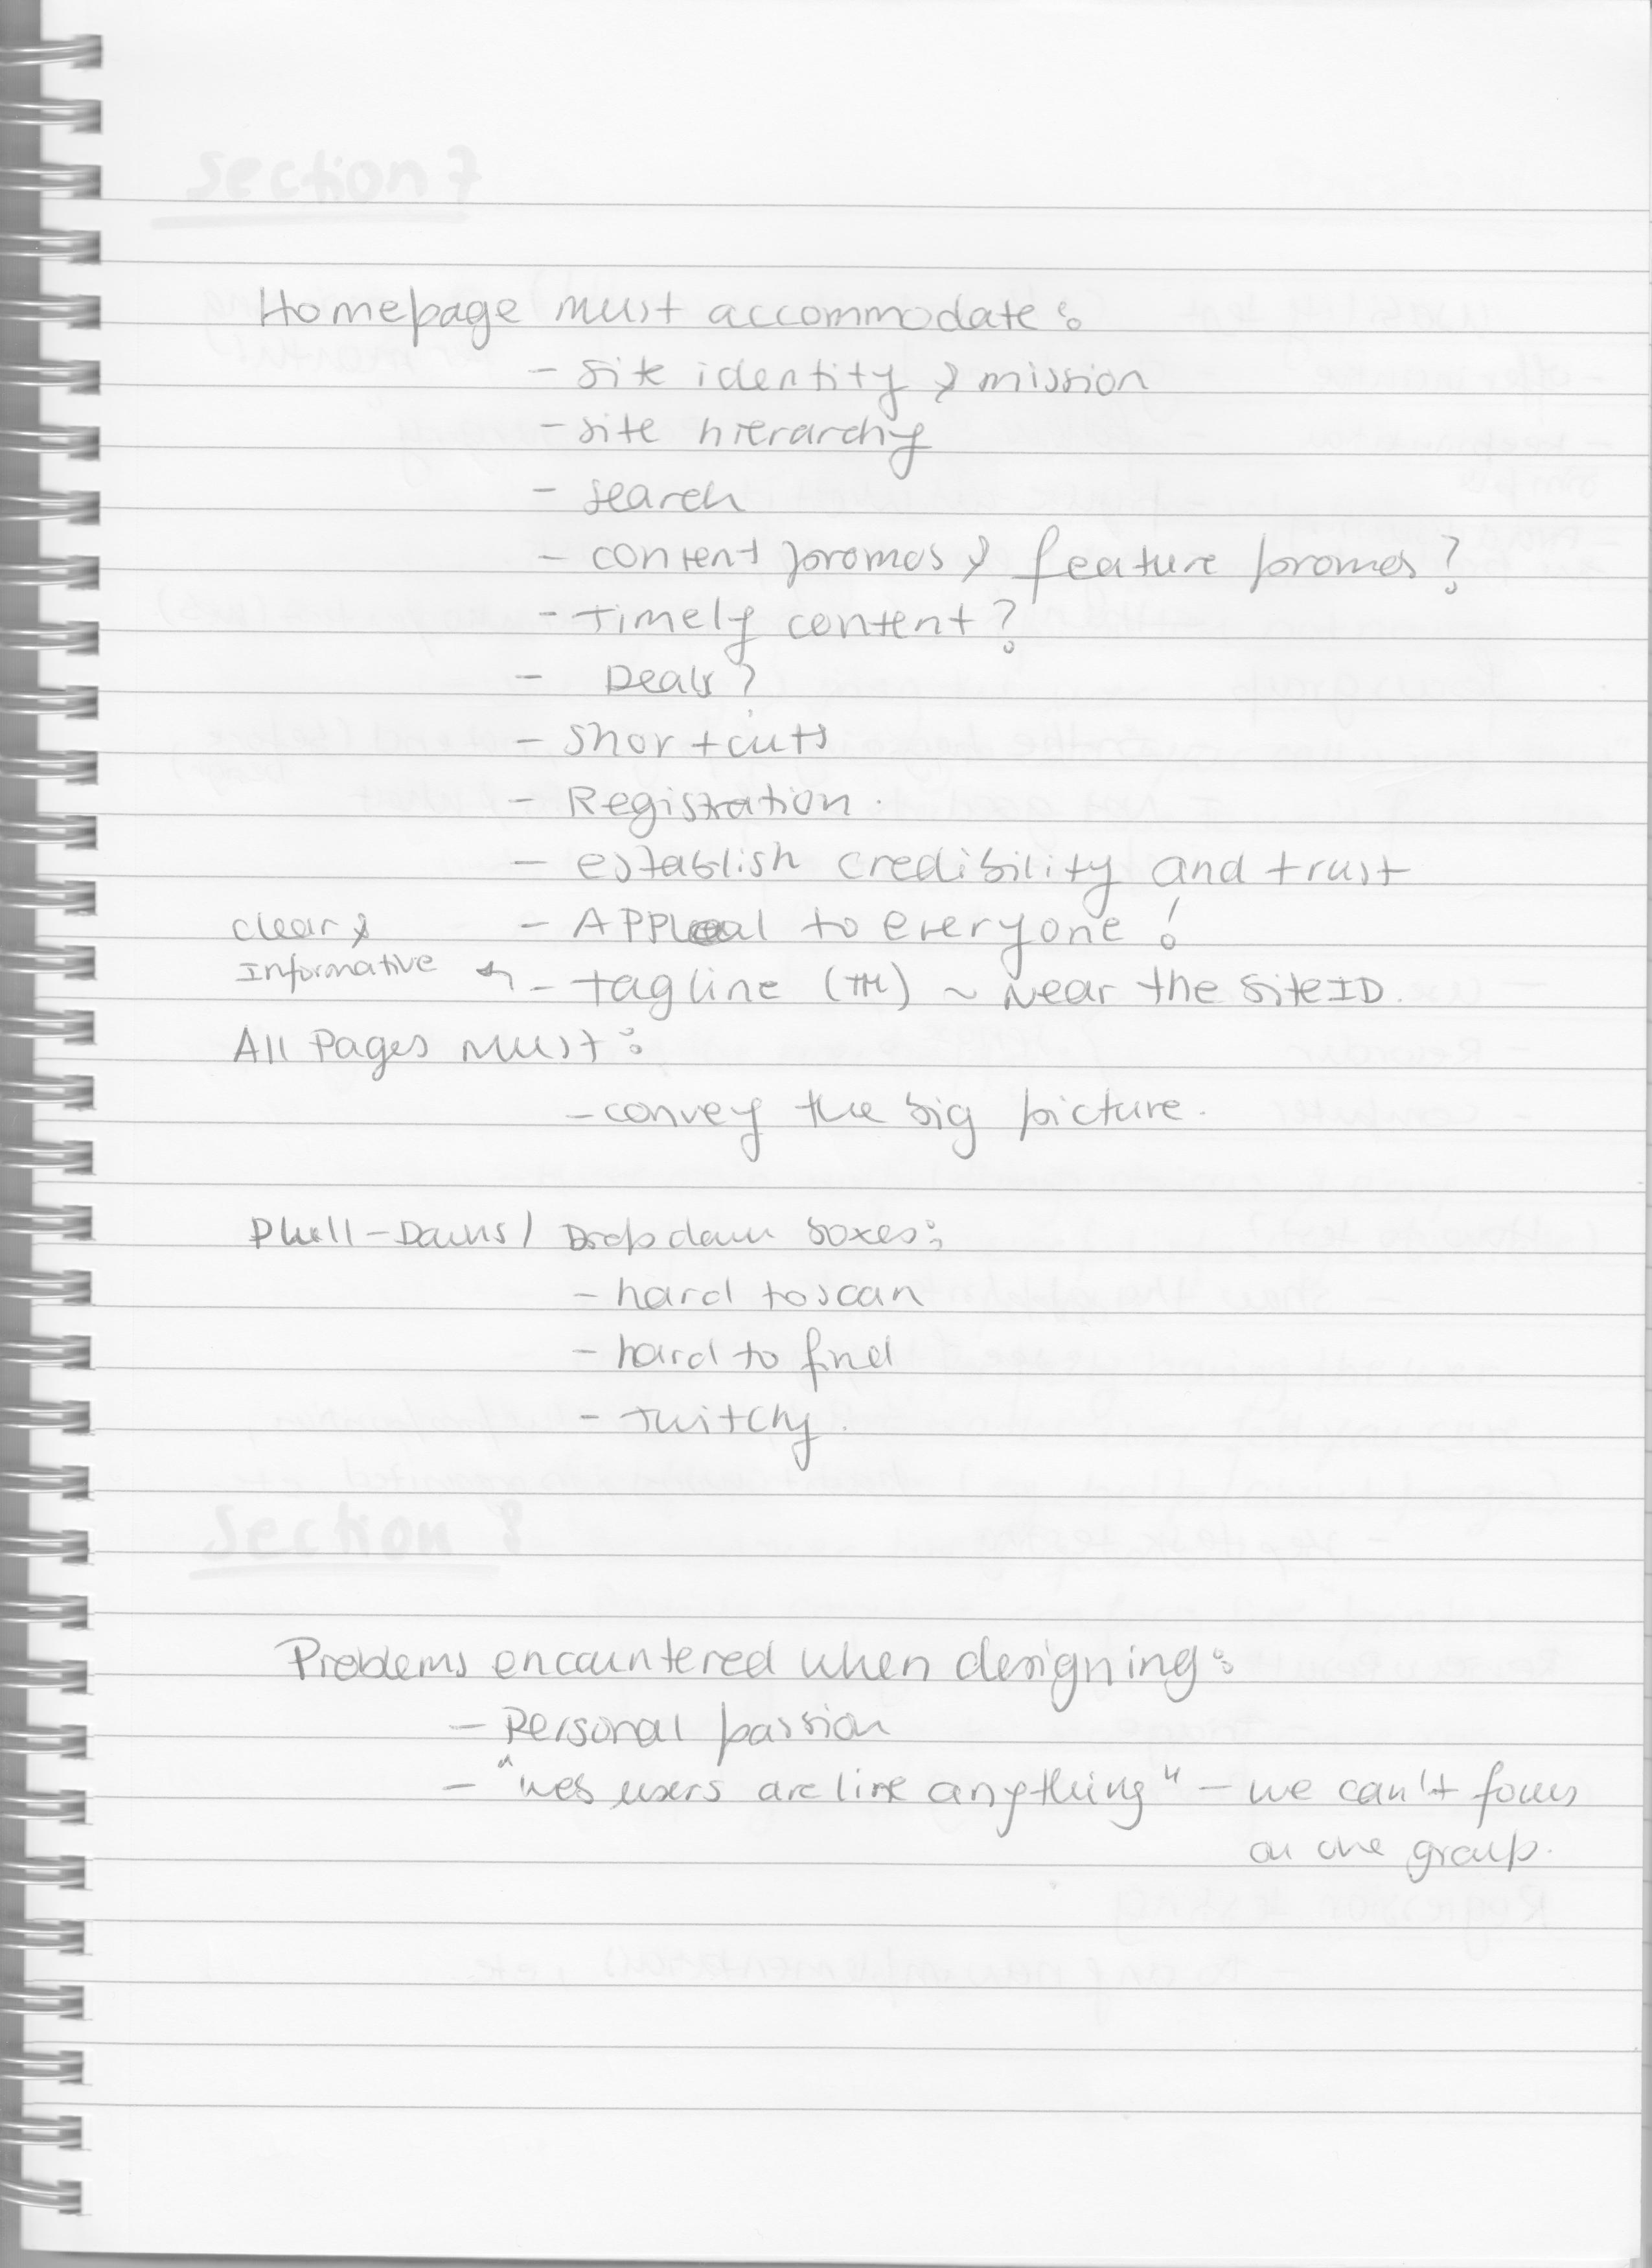 Section 7
Homepage must accommodate:
- Site identity & mission
- site hierarchy
- search
- content promos & feature promos?
- Timely content?
- Deals?
- Shortcuts
- Registration.
- establish credibility and trust
clear & - Appeal to everyone!
Informative ↰ - tagline (TM) ~ Near the site ID.
All Pages Must:
- convey the big picture.
Pull-Downs / Dropdown boxes:
- hard to scan
- hard to find
- twitchy.
Section 8
Problems encountered when designing:
- Personal passion
- "Web users are like anything" - we can't focus
on one group.